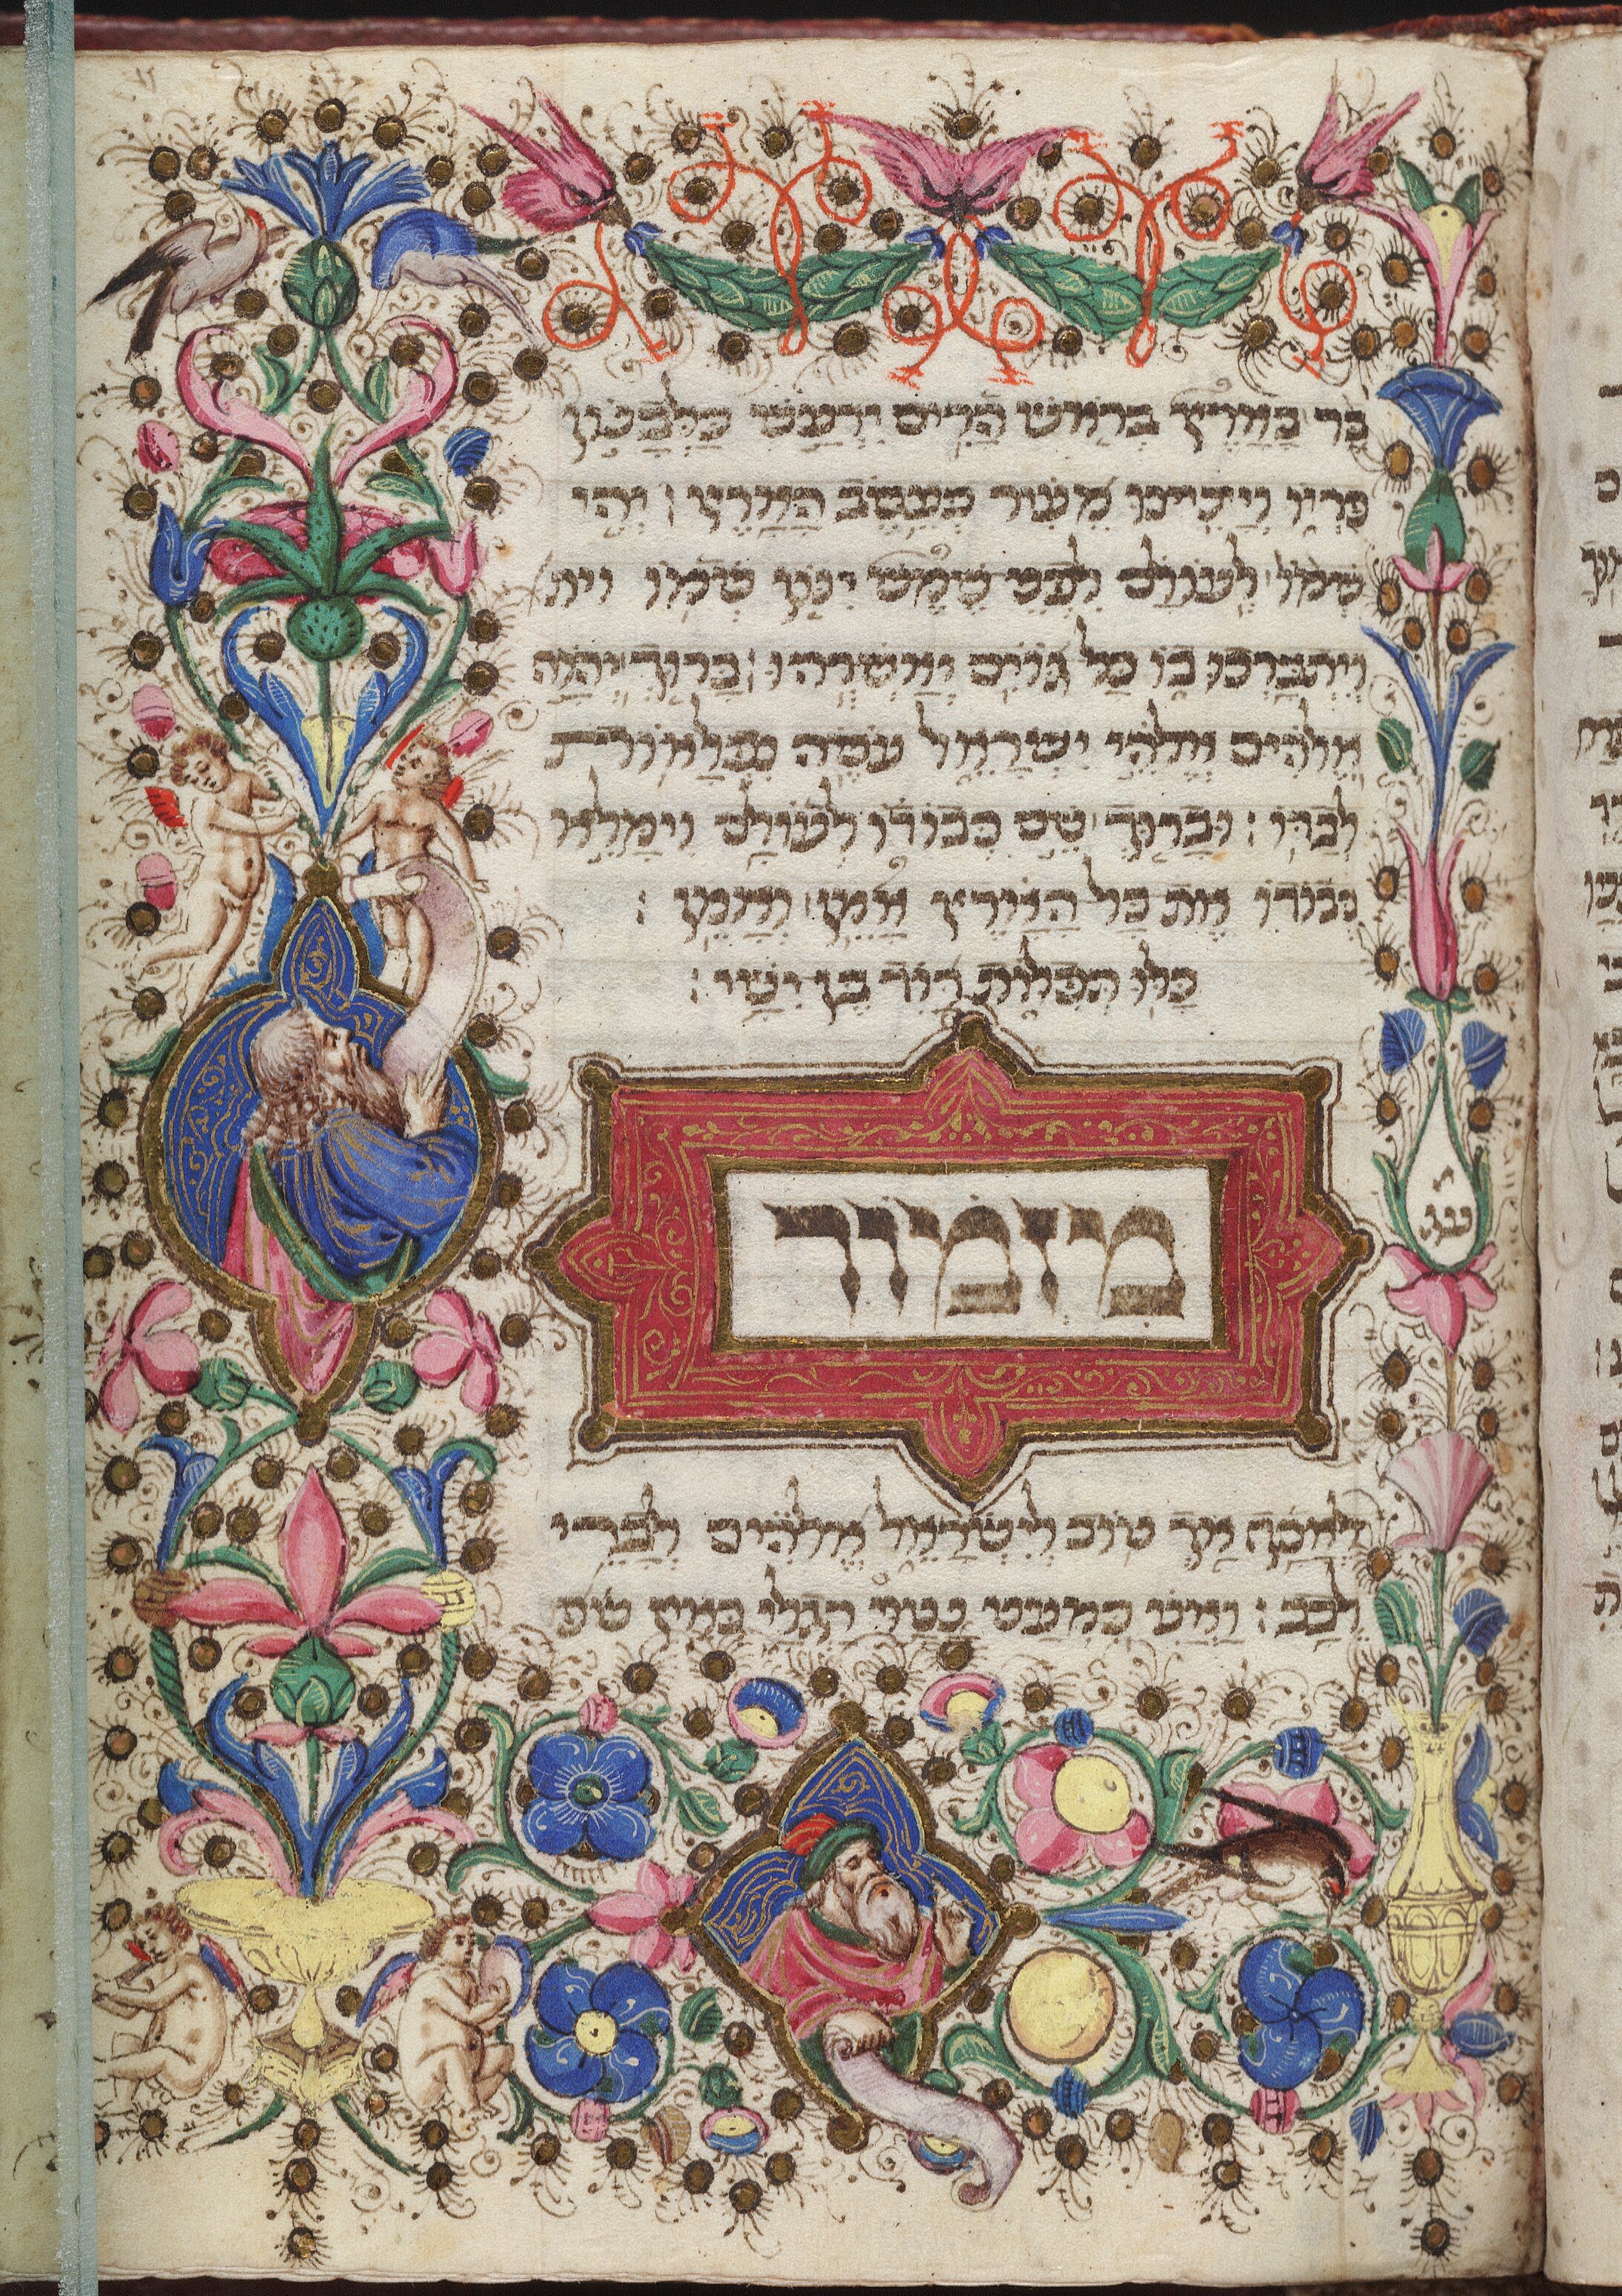 בַּר בָּאָרֶץ בְּרֹאשׁ הָרִים יִרְעַשׁ כַּלְּבָנוֹן
פִּרְיוֹ וְיָצִיצוּ מֵעִיר כְּעֵשֶׂב הָאָרֶץ : יְהִי
שְׁמוֹ לְעוֹלָם לִפְנֵי שֶׁמֶשׁ יִנּוֹן שְׁמוֹ וית
וְיִתְבָּרְכוּ בוֹ כָּל גּוֹיִם יְאַשְּׁרֻהוּ : בָּרוּךְ יְהוָה
אֱלֹהִים אֱלֹהֵי יִשְׂרָאֵל עֹשֵׂה נִפְלָאוֹת
לְבַדּוֹ : וּבָרוּךְ שֵׁם כְּבוֹדוֹ לְעוֹלָם וְיִמָּלֵא
כְבוֹדוֹ אֶת כָּל הָאָרֶץ אָמֵן וְאָמֵן :
כָּלּוּ תְפִלּוֹת דָּוִד בֶּן יִשָׁי :
מִזְמוֹר
לְאָסָף אַךְ טוֹב לְיִשְׂרָאֵל אֱלֹהִים לְבָרֵי
לֵבָב : וַאֲנִי כִּמְעַט נָטָיוּ רַגְלָי כְּאַיִן שפ